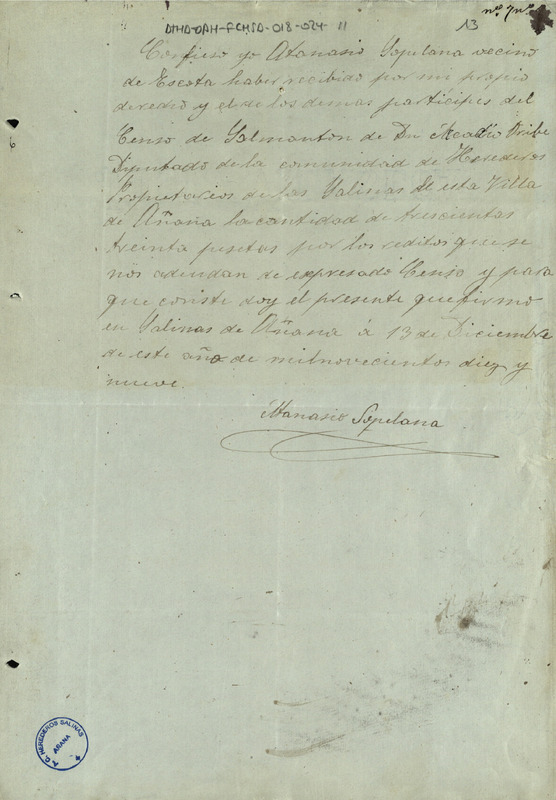 DTHD-DAH-FCHSD-018-024-11
13
nº 7nº
Confieso yo Atanasio Sopelana vecino
de Escota haber recibido por mi propio
derecho y el de los demas participes del
Censo de Salmanton de Dn Acadio Uribe
Diputado de la comunidad de Herederos
Propietarios de las Salinas de esta Villa
de Añana la cantidad de trescientas
treinta pesetas por los reditos que se
nos adeudan de expresado Censo y para
que conste doy el presente que firmo
en Salinas de Añana á 13 de Diciembre
de este año de milnovecientos diez y
nueve.
Atanasio Sopelana
A. C. HEREDEROS SALINAS
AÑANA